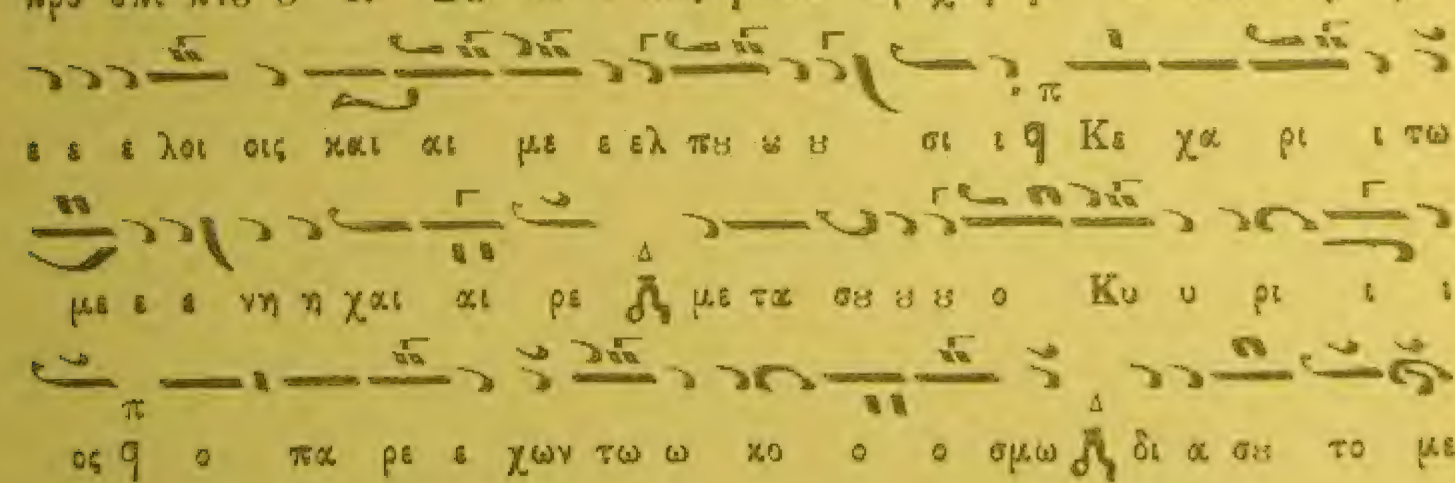 ε ε ε λοι οις και αι με ε ελ πȣ ȣ ȣ σι ι Κε χα ρι ι τω
με ε ε νη η χαι αι ρε με τα σȣ ȣ ȣ ο Κυ υ ρι ι ι
ος ο πα ρε ε χων τω ω κο ο ο σμω δι α σȣ το με